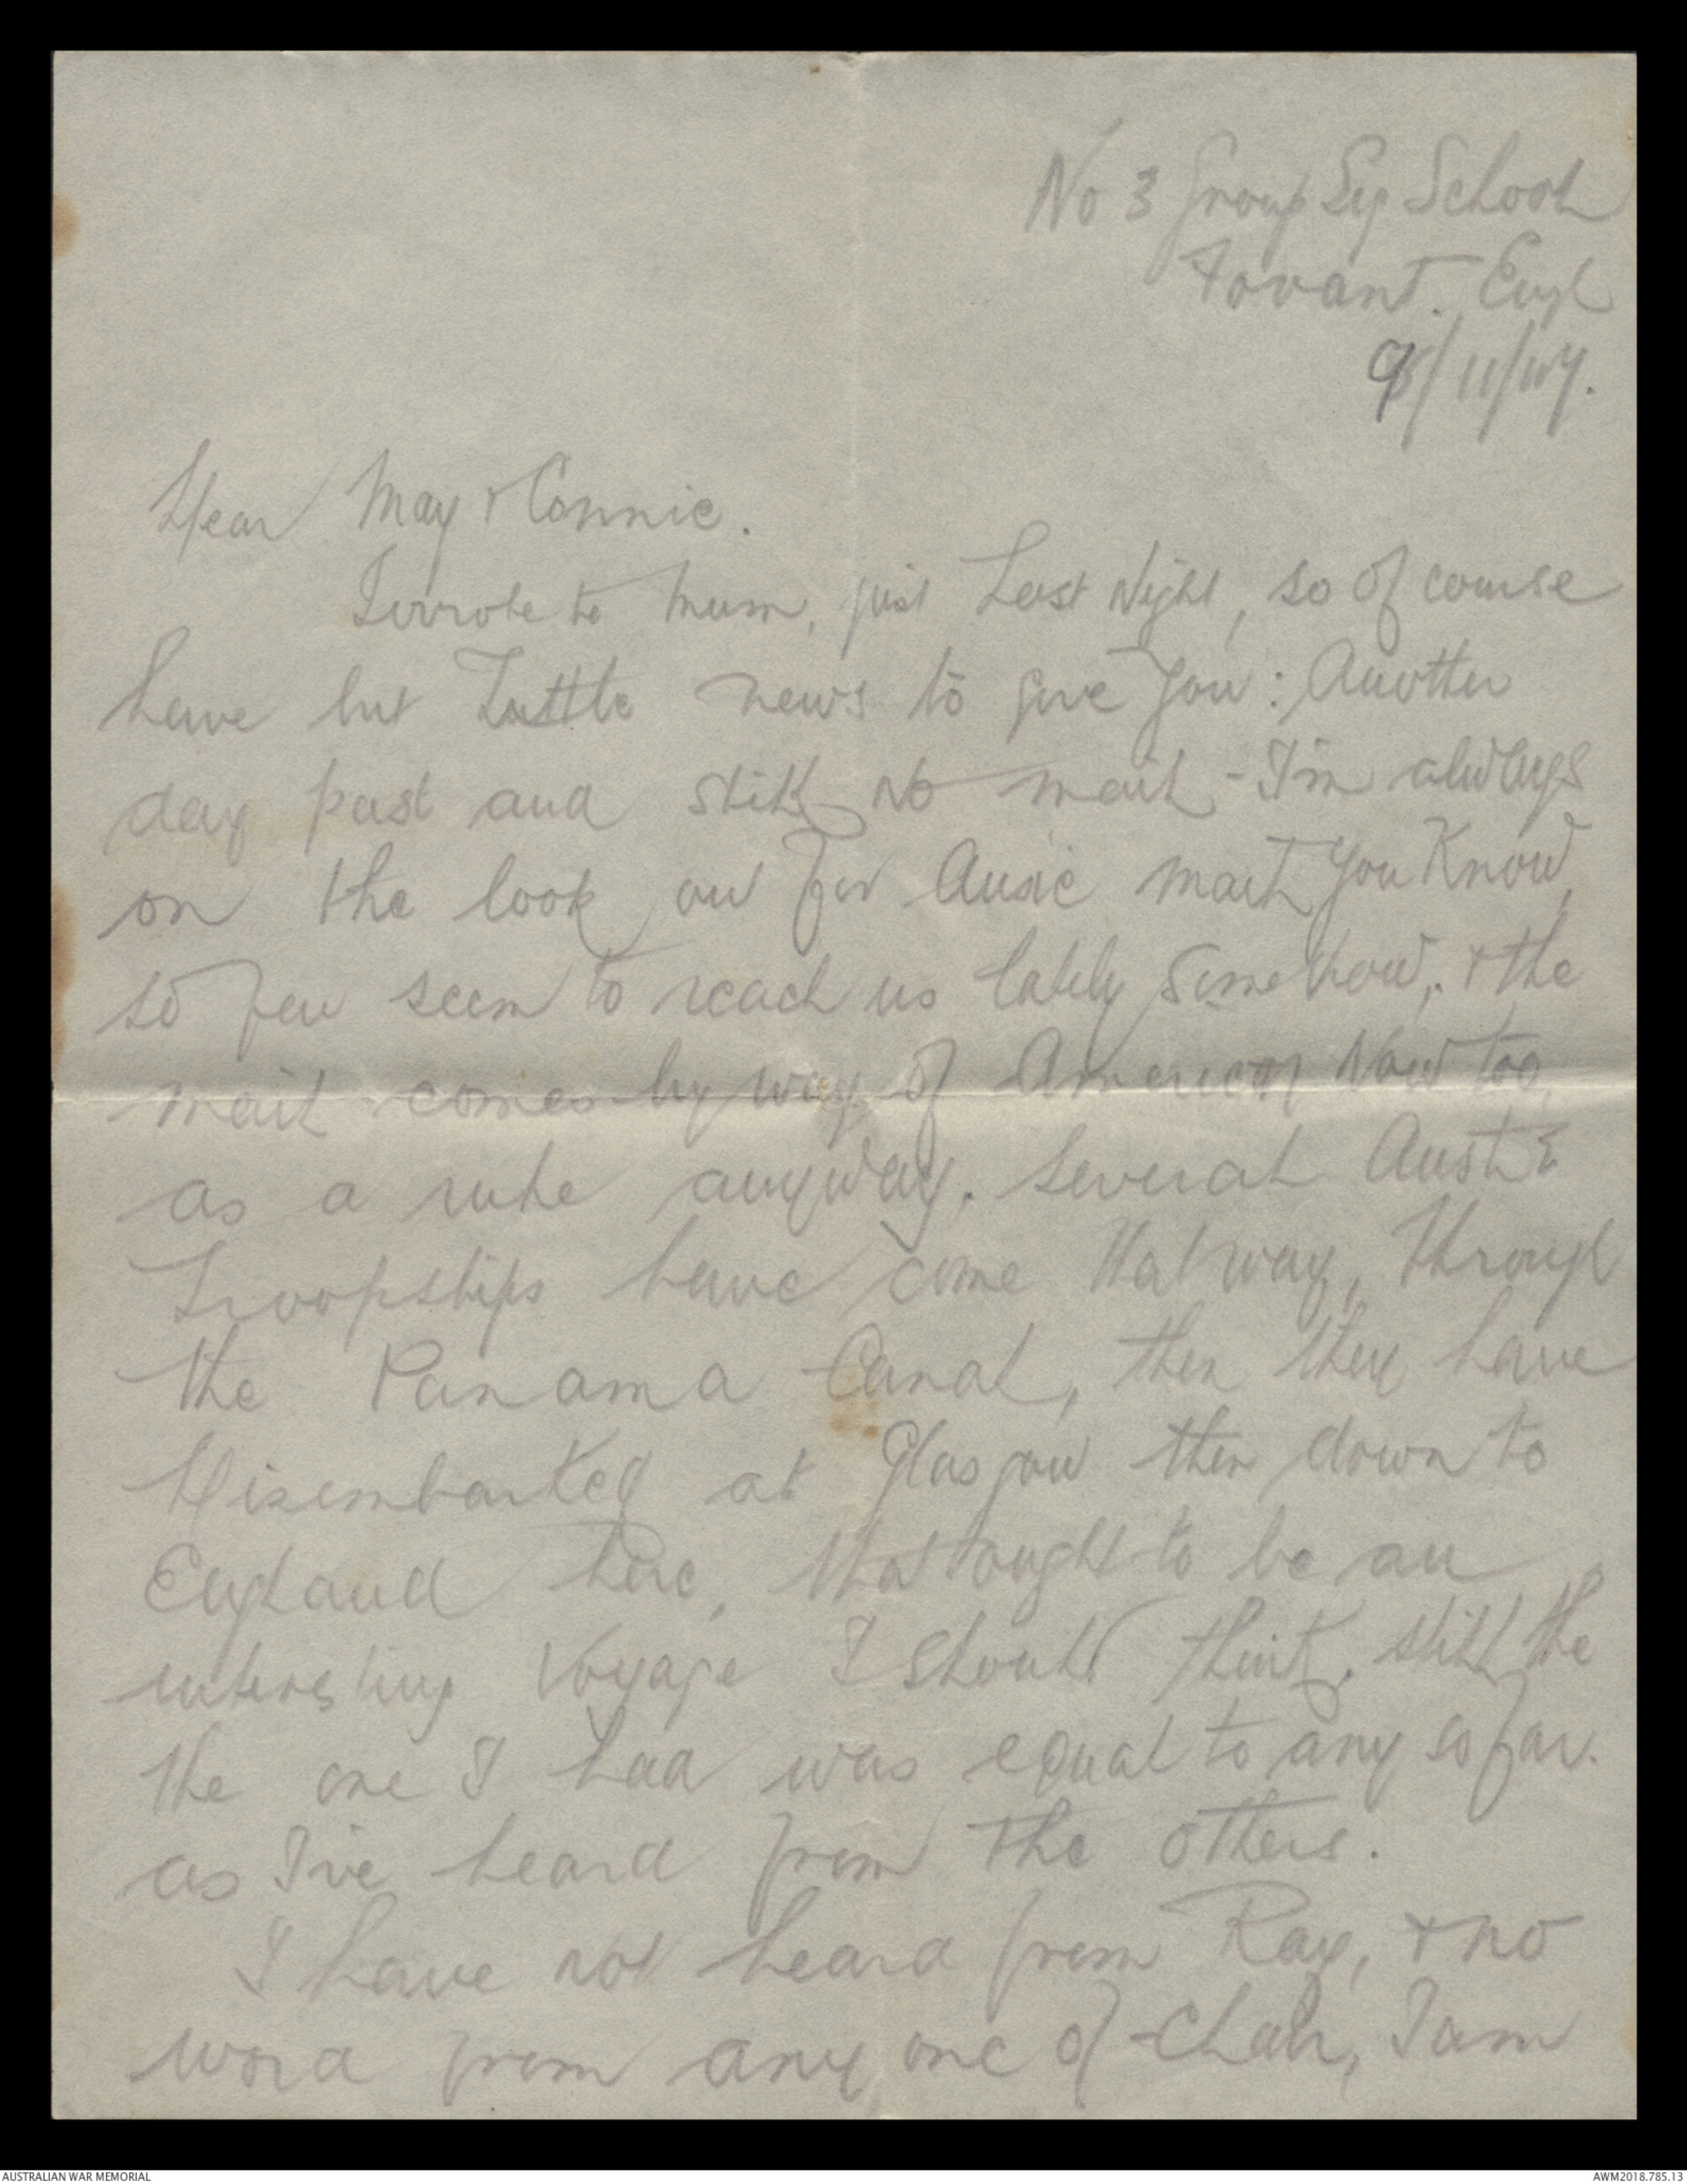 No 3 Group Sig School
Fovant. Engl
9/11/17.
Dear May & Connie.
I wrote to Mum, just Last Night, so of course
have but Little news to give you: Another
day past and still no mail - I'm always
on the look out for Ausie mail you Know,
so few seem to reach us lately somehow, & the
mail comes by way of American Now too,
as a rule anyway. Several Aust
Troopships have come that way, through
the Panama Canal, then they have
Disembarked at Glasgow then down to
England here, that ought to be an
interesting Voyage I should think, still the
the one I had was equal to any so far.
as I've heard from the others.
I have not heard from Ray, & no
word from any one of Chah, I am
AUSTRALIAN WAR MEMORIAL
AWM2018.785.13